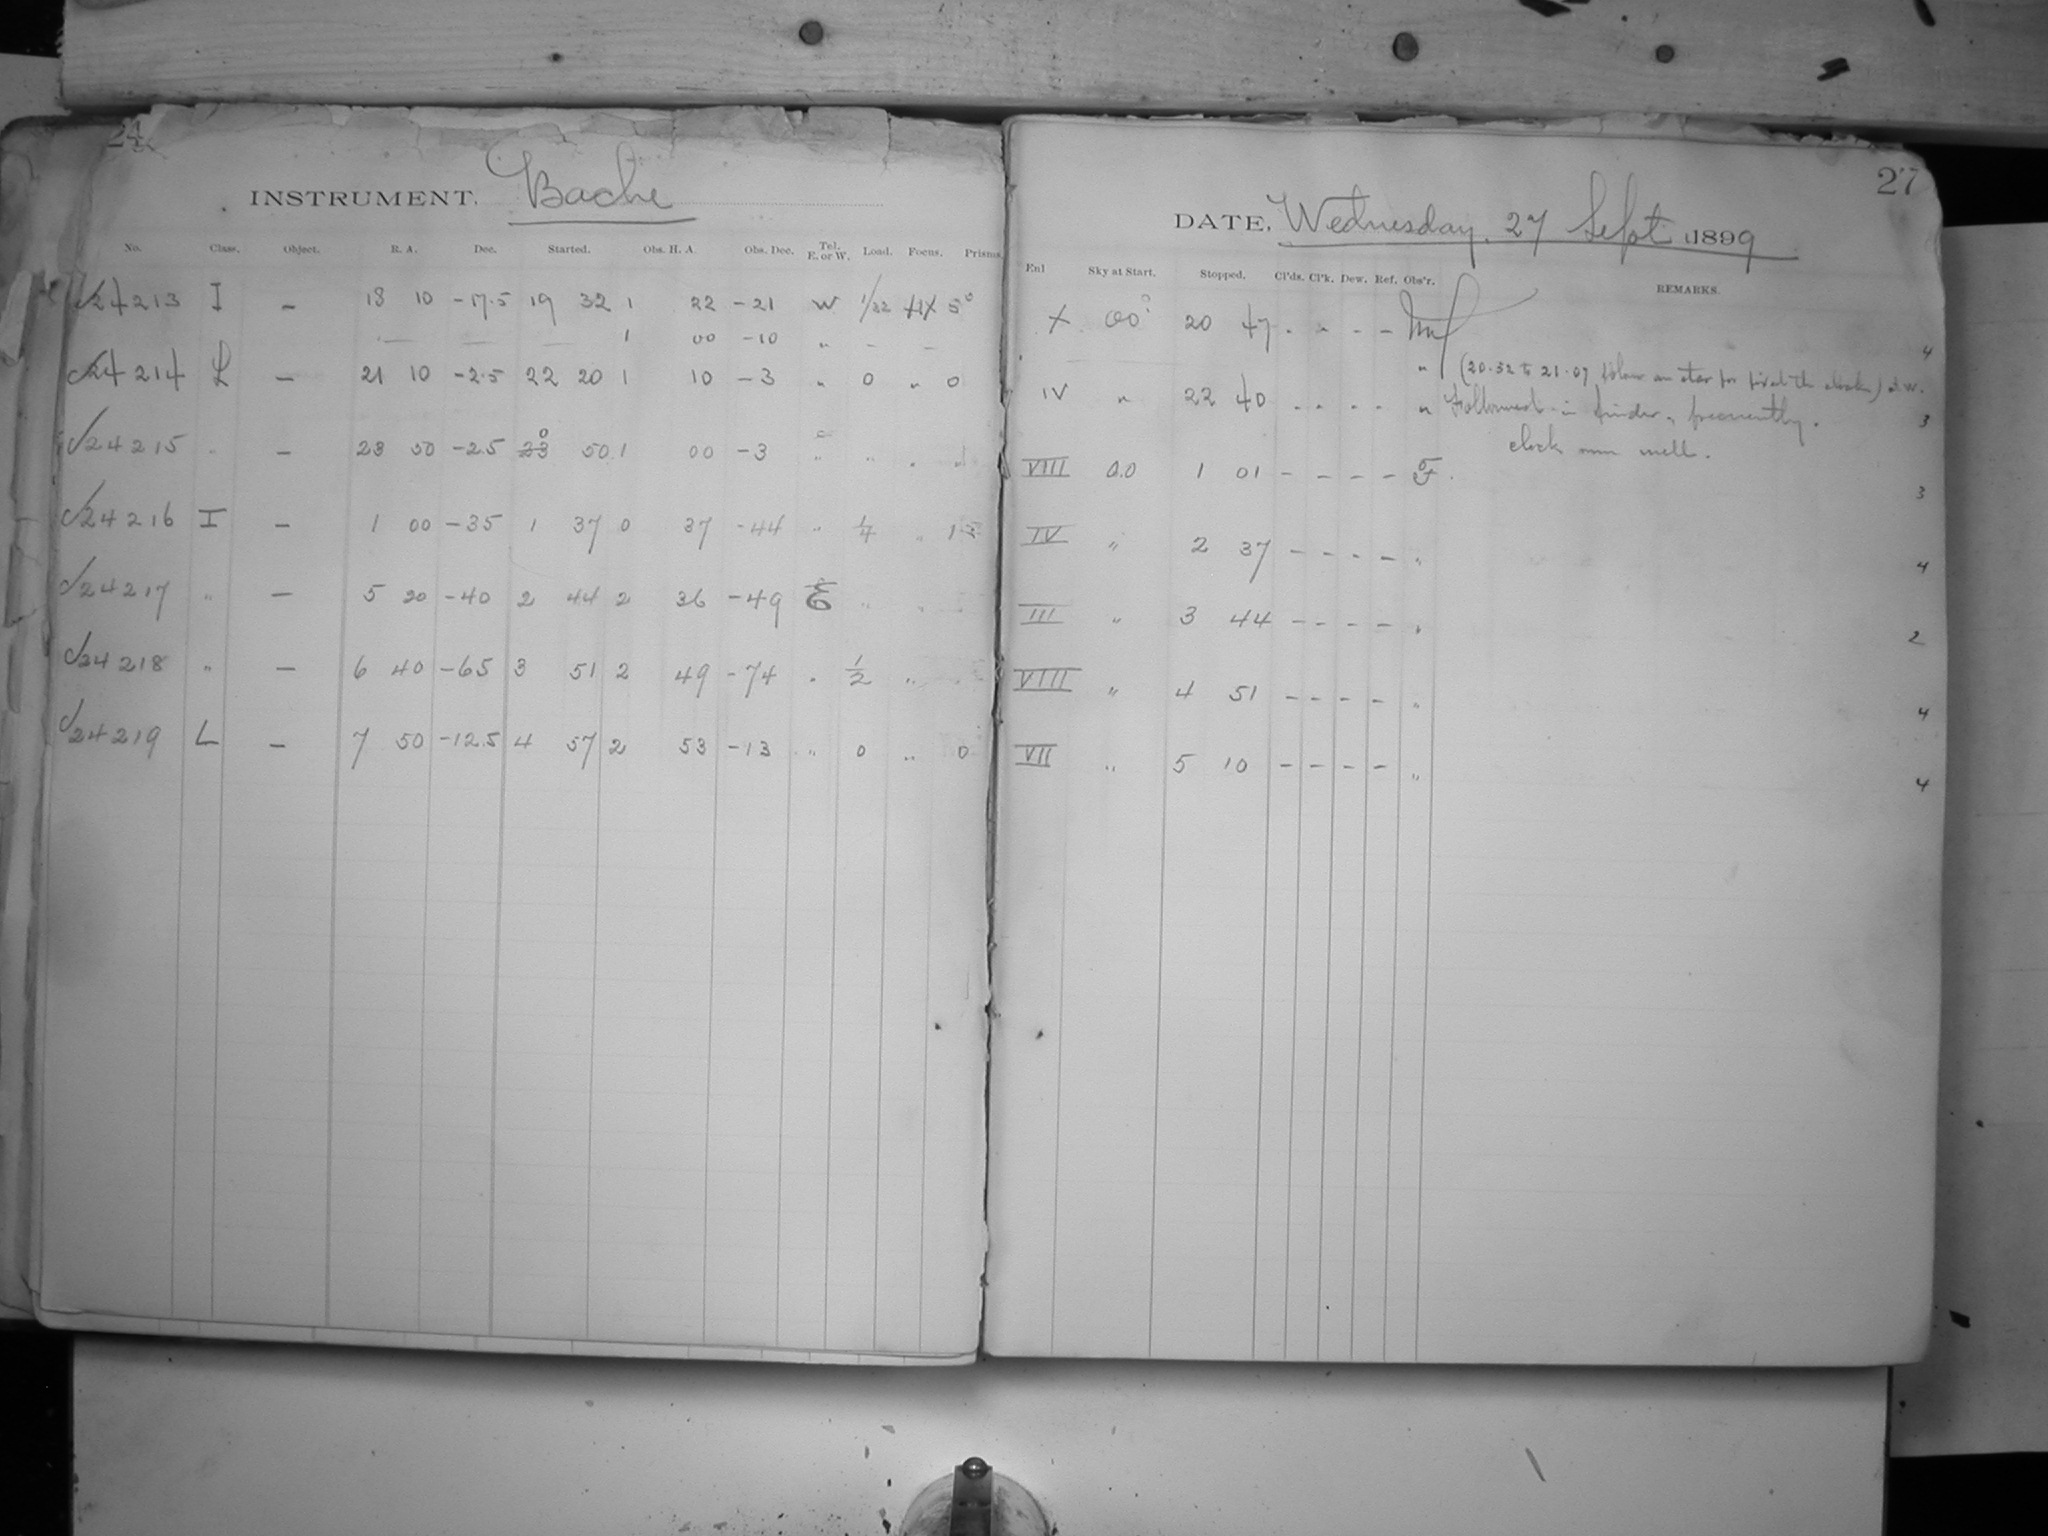 24
INSTRUMENT. Bache
No. Class. Object. R. A. Dec. Started. Obs. H. A. Obs. Dec. Tel. E. or W. Load. Focus. Prisms.
√24213 I — 18 10 -17.5 19 32 1 22 -21 W 1/32 5°
— — — 1 00 -10 " — —
√24214 L — 21 10 -2.5 22 20 1 10 -3 " 0 " 0
√24215 " — 23 50 -2.5 23 0 50 1 00 -3 " " " "
√24216 I — 1 00 -35 1 37 0 37 -44 " 1/4 "
√24217 " — 5 20 -40 2 44 2 36 -49 E " "
√24218 " — 6 40 -65 3 51 2 49 -74 " 1/2 " "
√24219 L — 7 50 -12.5 4 57 2 53 -13 " 0 " 0
27
DATE, Wednesday, 27 Sept. 1899
Enl Sky at Start. Stopped. Cl'ds. Cl'k. Dew. Ref. Obs'r. REMARKS.
X 00 20 47 - - - - 4
" (20.52 to 21.07
IV " 22 40 - - - - " Followed in finder, frequently. 3
clock run well.
VIII 0.0 1 01 - - - - F. 3
IV " 2 37 - - - - " 4
III " 3 44 - - - - " 2
VIII " 4 51 - - - - " 4
VII " 5 10 - - - - " 4